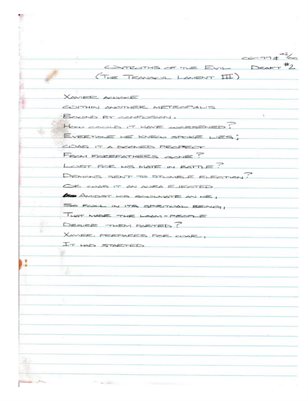 Oct 99
Contruths of the Evil Draft #2
(The Transcyl Lament III)
Xamier awoke
Within another metropolis
Bound by confusion.
How could it have worsened?
Everyone he knew spoke lies;
Was it a doomed prospect
From forefathers gone?
Lust for his mate in battle?
Demons sent to stumble election?
Or was it an aura ejected
Amidst his soulmate an he,
So foul in its spiritual being,
That made the people
Desire them parted?
Xamier prepares for war,
It had started